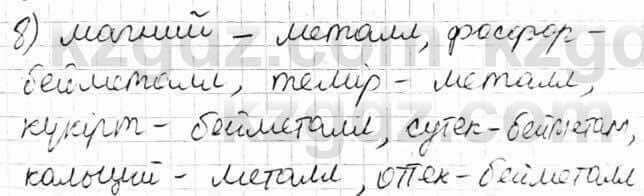 8) магний - металл, фосфор -
бейметалл, темір - металл,
күкірт - бейметалл, сутек - бейметалл,
кальций - металл, оттек - бейметалл